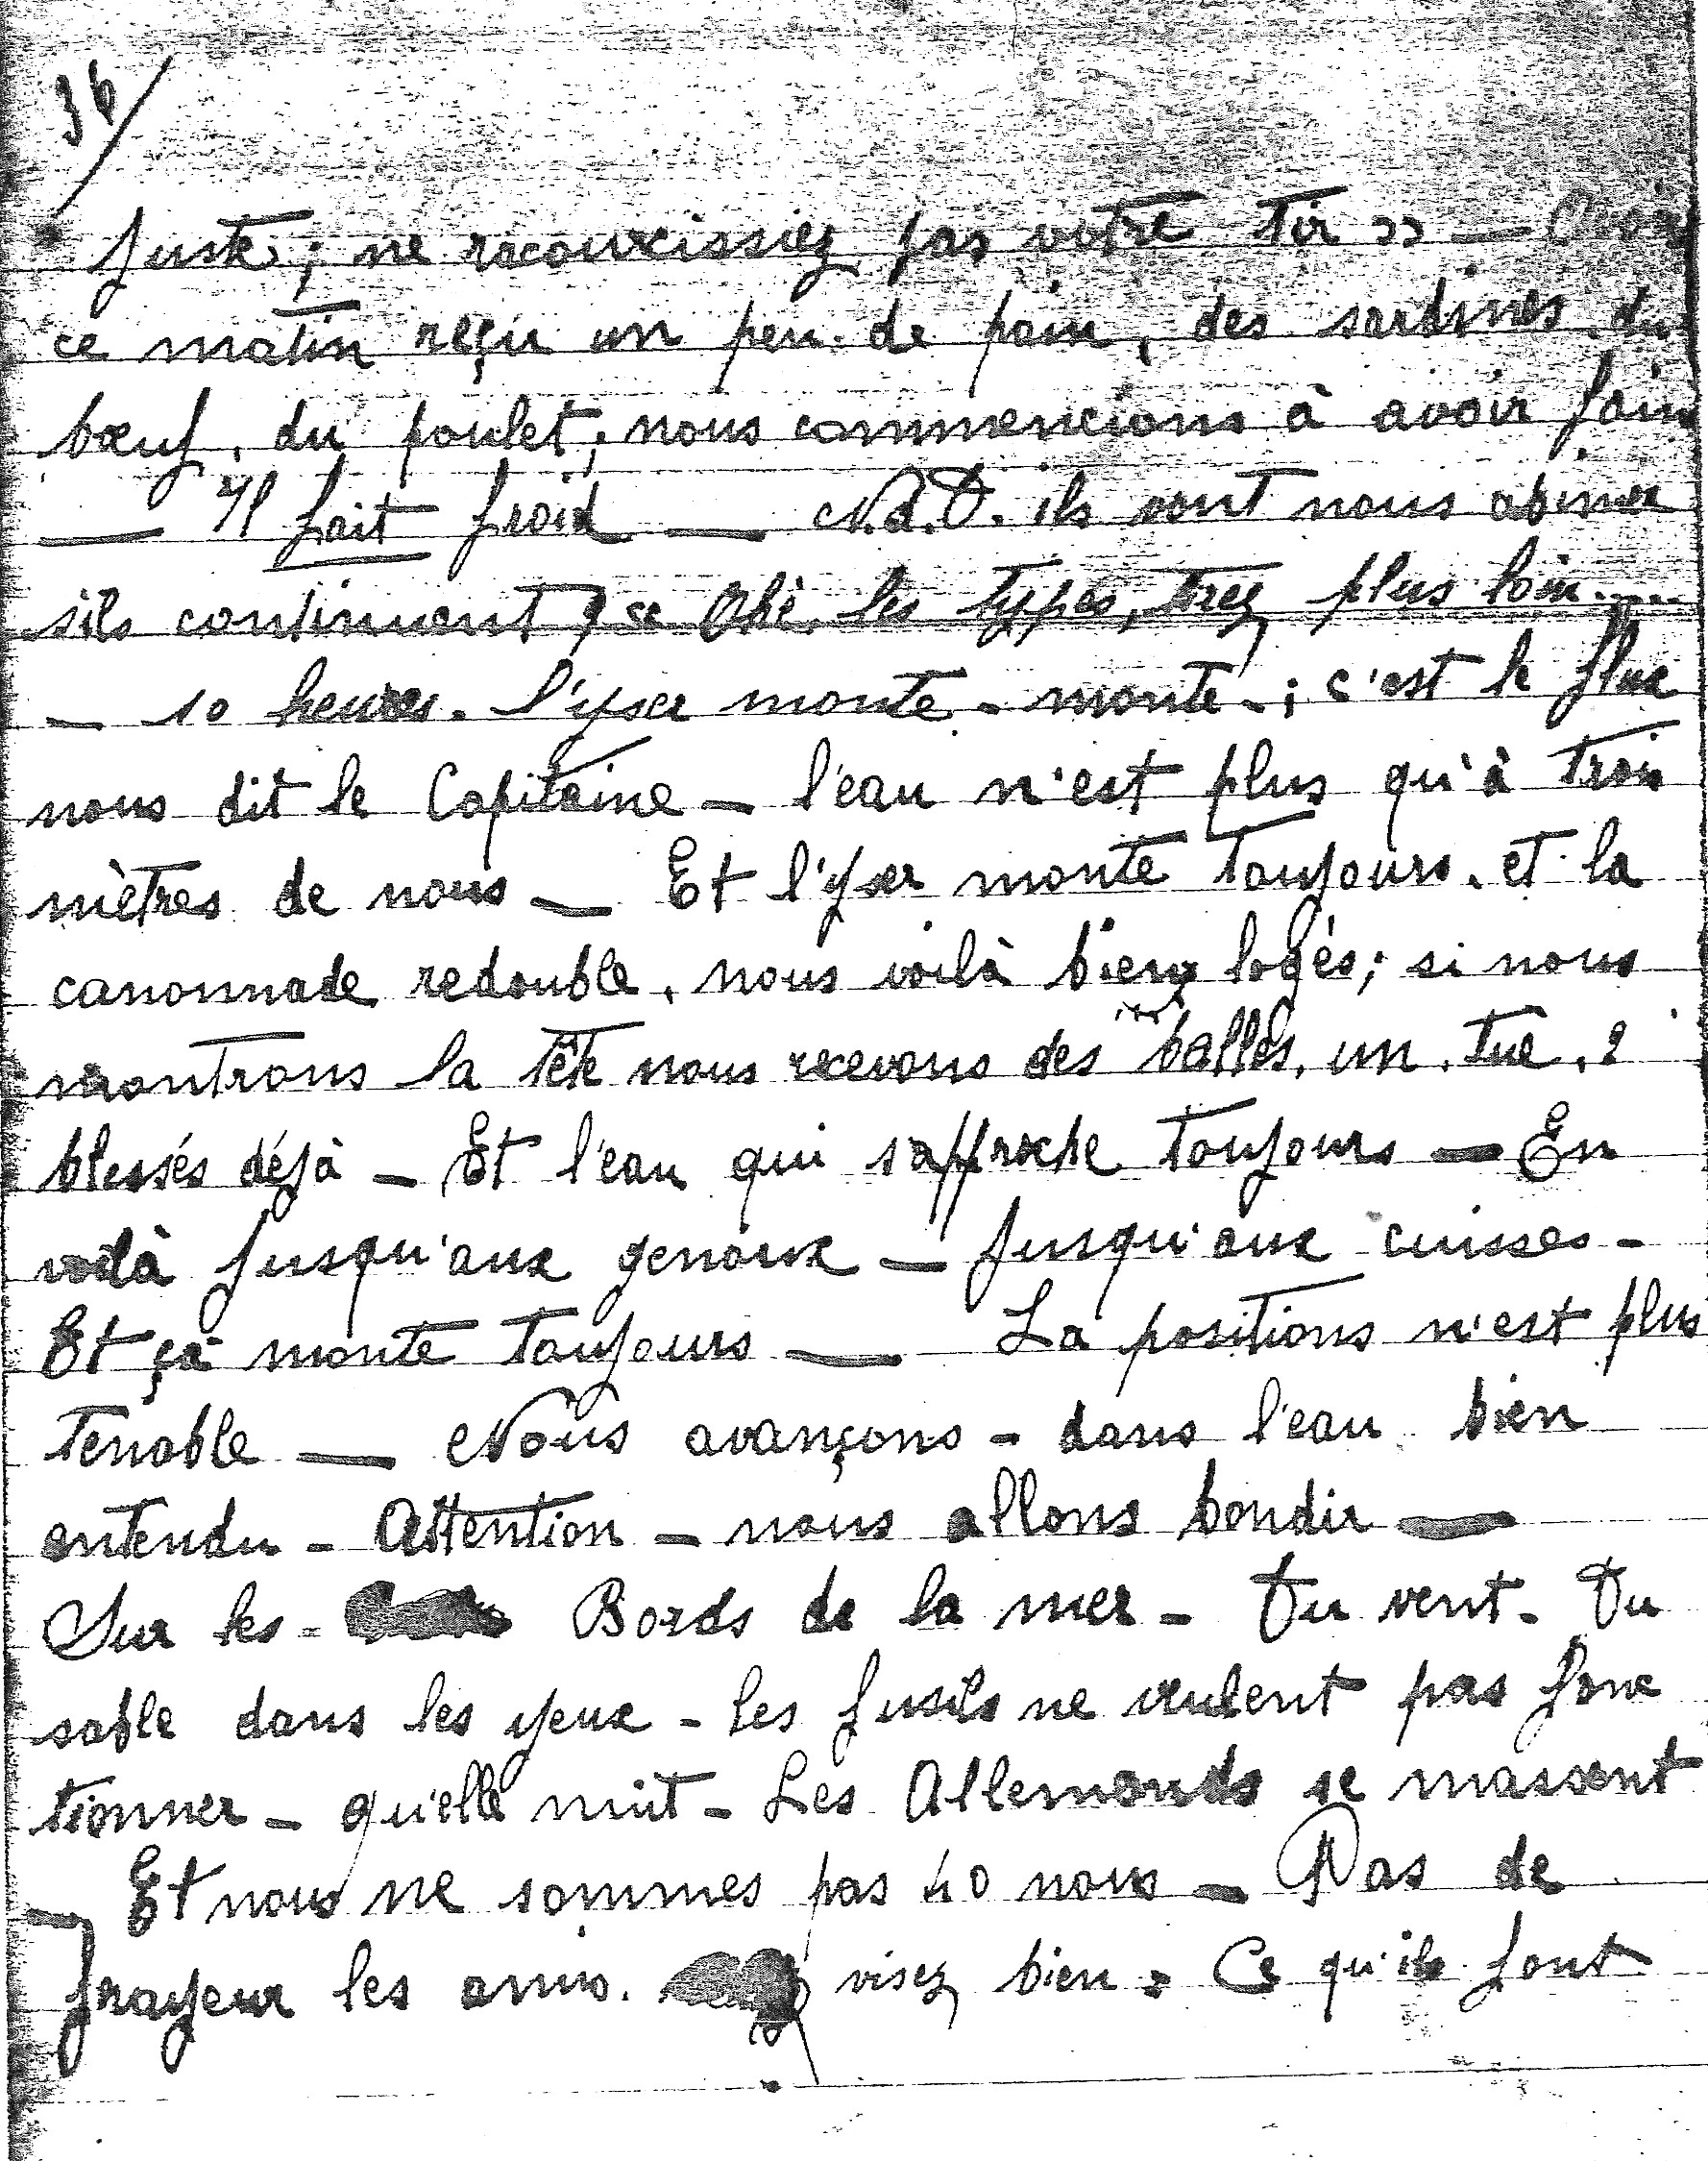 36/
juste ; ne raccourcissiez pas votre tir » —
ce matin reçu un peu de pain, des sardines, du
bœuf, du poulet ; nous commencions à avoir faim
— Il fait froid — N.d.D. ils vont nous abimer
s'ils continuent, « Ohé les types, tirez plus loin.....
— 10 heures. l'yser monte - monte - ; c'est le flux
nous dit le Capitaine — l'eau n'est plus qu'à trois
mètres de nous — Et l'yser monte toujours, et la
canonnade redouble, nous voilà bien logés ; si nous
montrons la tête nous recevons des balles, un tué, 2
blessés déjà — Et l'eau qui s'approche toujours — En
voilà jusqu'aux genoux — jusqu'aux cuisses -
Et çà monte toujours — La positions n'est plus
tenable — Nous avançons - dans l'eau bien
entendu - Attention - nous allons bondir —
Sur les - Bords de la mer - Du vent - Du
sable dans les yeux - les fusils ne veulent pas fonc
tionner - qu'elle nuit - Les Allemands se massent
— Et nous ne sommes pas 40 nous — Pas de
frayeur les amis. visez bien. Ce qu'ils font